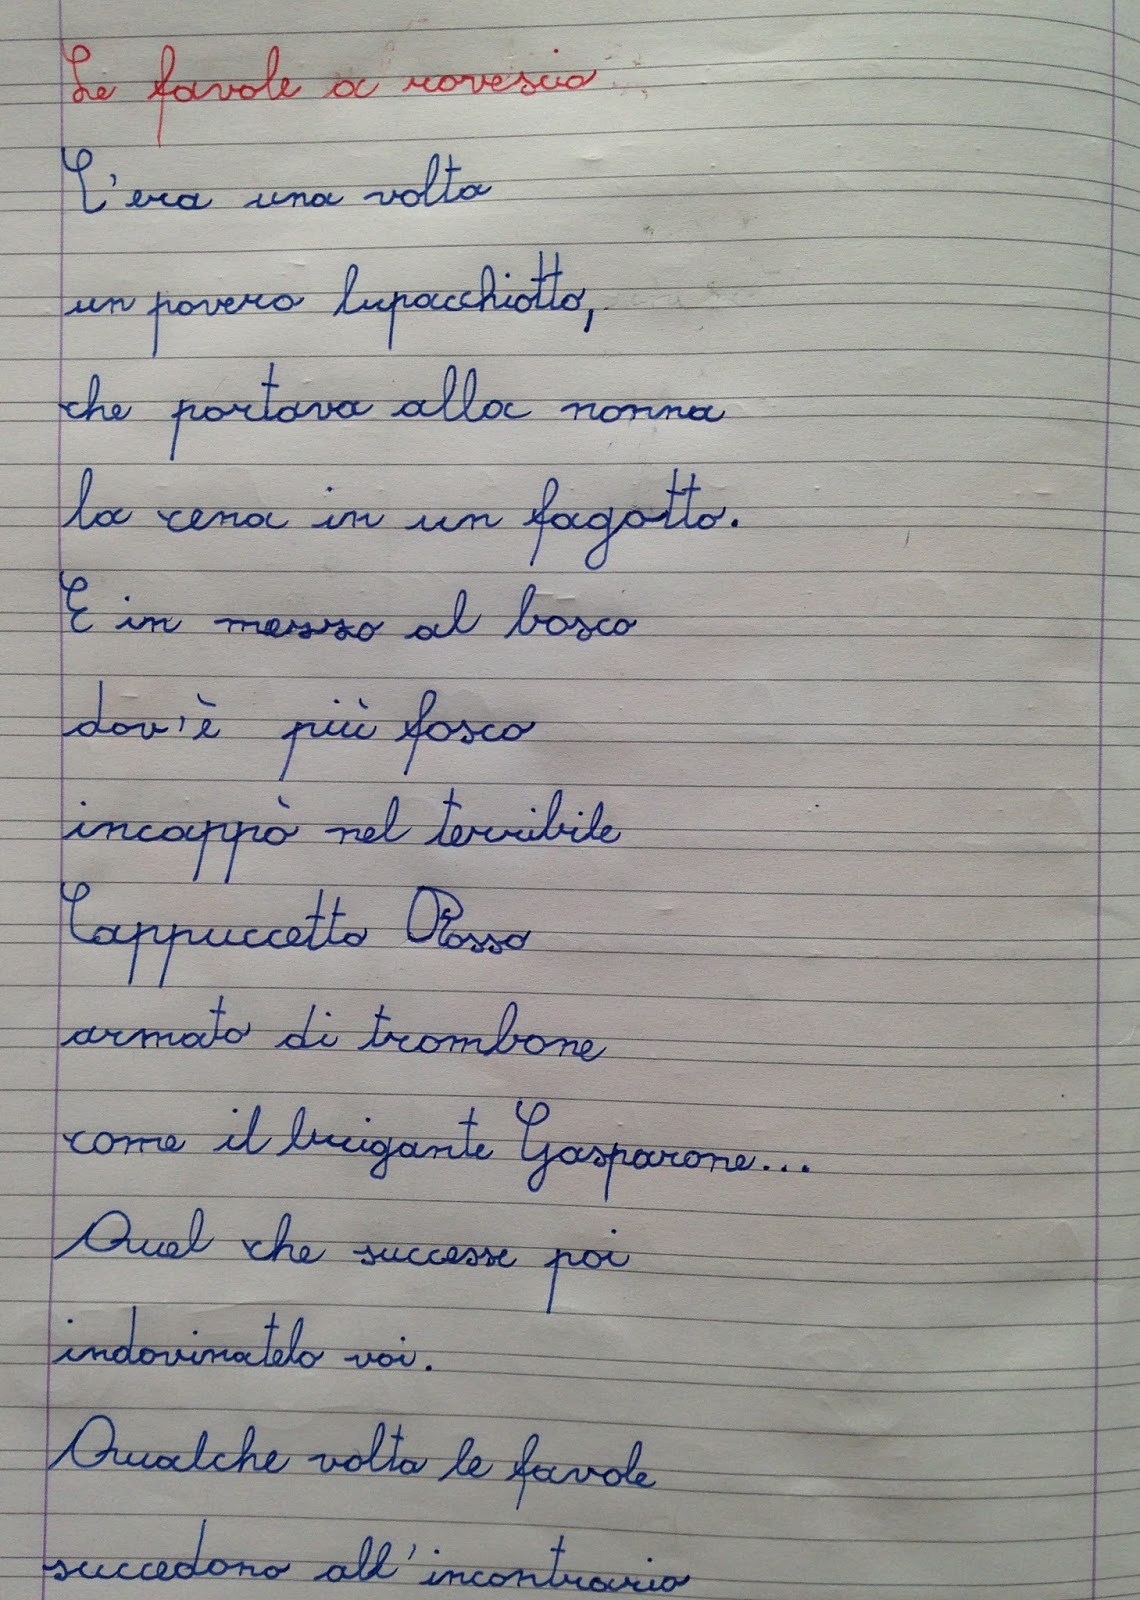 Le favole a rovescio
C'era una volta
un povero lupacchiotto,
che portava alla nonna
la cena in un fagotto.
E in mezzo al bosco
dov'è più fosco
incappò nel terribile
Cappuccetto Rosso
armato di trombone
come il brigante Gasparone...
Quel che successe poi
indovinatelo voi.
Qualche volta le favole
succedono all'incontrario